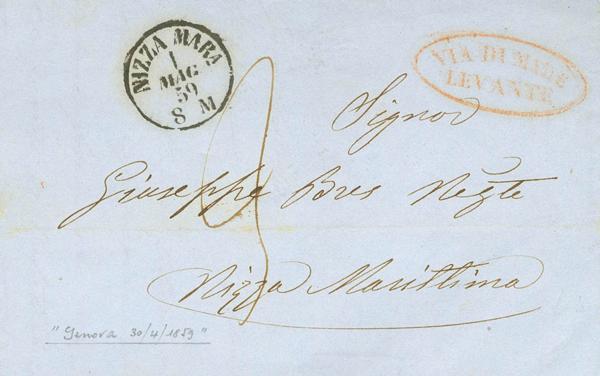 NIZZA MAR.A
1
MAG
59
8 M
VIA DI MARE
LEVANTE
3
Signor
Giuseppe Bres Negte
Nizza Marittima
"Genova 30/4/1859"